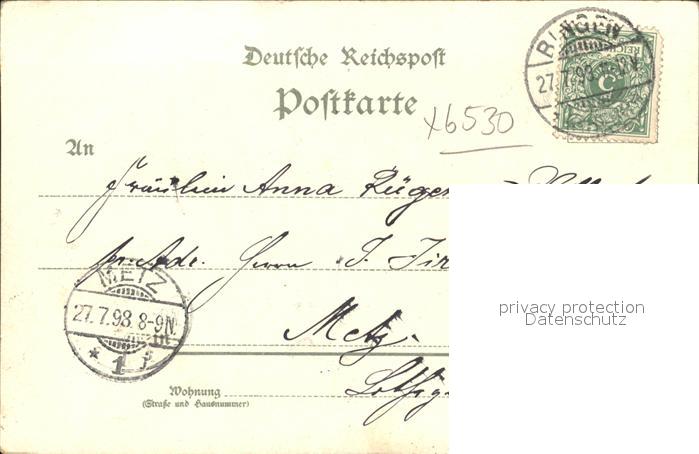 Deutsche Reichspost
Postkarte
BINGEN
27.7.98
REICHS
x6530
An
Fräulein Anna Rüger
pr. Adr. Herrn J.
METZ
27.7.98 8-9N.
* 1
Metz
privacy protection
Datenschutz
Wohnung
(Straße und Hausnummer)